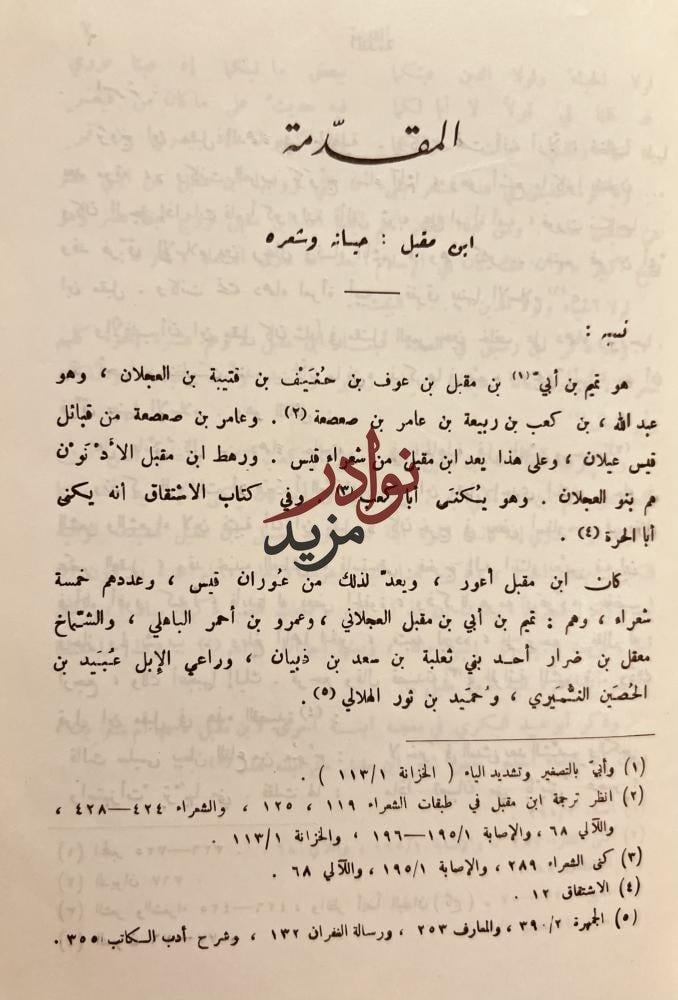 المقدّمة
ابن مقبل : حياته وشعره
نسبه :
هو تميم بن أبيّ (١) بن مقبل بن عوف بن حُنَيْف بن قتيبة بن العجلان ، وهو
عبد الله ، بن كعب بن ربيعة بن عامر بن صعصعة (٢) . وعامر بن صعصعة من قبائل
قيس عيلان ، وعلى هذا يعد ابن مقبل من شعراء قيس . ورهط ابن مقبل الأدْنَوْن
هم بنو العجلان . وهو يُكنَى أبا كعب (٣) . وفي كتاب الاشتقاق أنه يكنى
أبا الحرة (٤) .
كان ابن مقبل أعور ، ويعدّ لذلك من عُوران قيس ، وعددهم خمسة
شعراء ، وهم : تميم بن أبي بن مقبل العجلاني ، وعمرو بن أحمر الباهلي ، والشمّاخ
معقل بن ضرار أحد بني ثعلبة بن سعد بن ذبيان ، وراعي الإبل عُبَيد بن
الحُصَين النُّمَيري ، وحُمَيد بن ثور الهلالي (٥) .
(١) وأبيّ بالتصغير وتشديد الياء ( الخزانة ١١٣/١ ) .
(٢) انظر ترجمة ابن مقبل في طبقات الشعراء ١١٩ ، ١٢٥ ، والشعراء ٤٢٤—٤٢٨ ،
واللآلي ٦٨ ، والإصابة ١٩٥/١—١٩٦ ، والخزانة ١١٣/١ .
(٣) كنى الشعراء ٢٨٩ ، والإصابة ١٩٥/١ ، واللآلي ٦٨ .
(٤) الاشتقاق ١٢ .
(٥) الجمهرة ٣٩٠/٢ ، والمعارف ٢٥٣ ، ورسالة الغفران ١٣٢ ، وشرح أدب الكاتب ٣٥٥ .
نوادر
مزيد